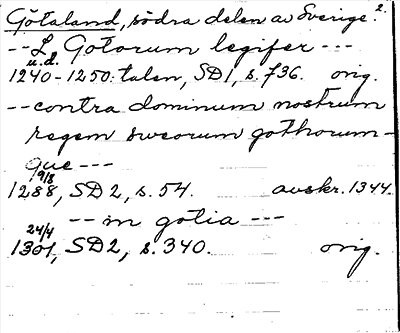 Götaland, södra delen av Sverige. 2.
-- L Gotorum legifer ---
u.d.
1240-1250-talen, SD1, s. 736. orig.
-- contra dominum nostrum
regem sweorum gothorum-
que ---
9/8
1288, SD2, s. 54. avskr. 1344.
-- in gotia ---
24/4
1301, SD2, s. 340. orig.